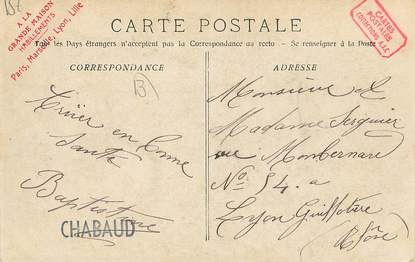 A LA
GRANDE MAISON
HABILLEMENTS
Paris, Marseille, Lyon, Lille
CARTE POSTALE
Tous les Pays étrangers n'acceptent pas la Correspondance au recto — Se renseigner à la Poste
CARTES
POSTALES
CORRESPONDANCE
ADRESSE
B
en bonne
Santé
Baptistine
CHABAUD
Monsieur et
Madame
rue Montbernard
No 54. a
Lyon Guillotière
Rhône